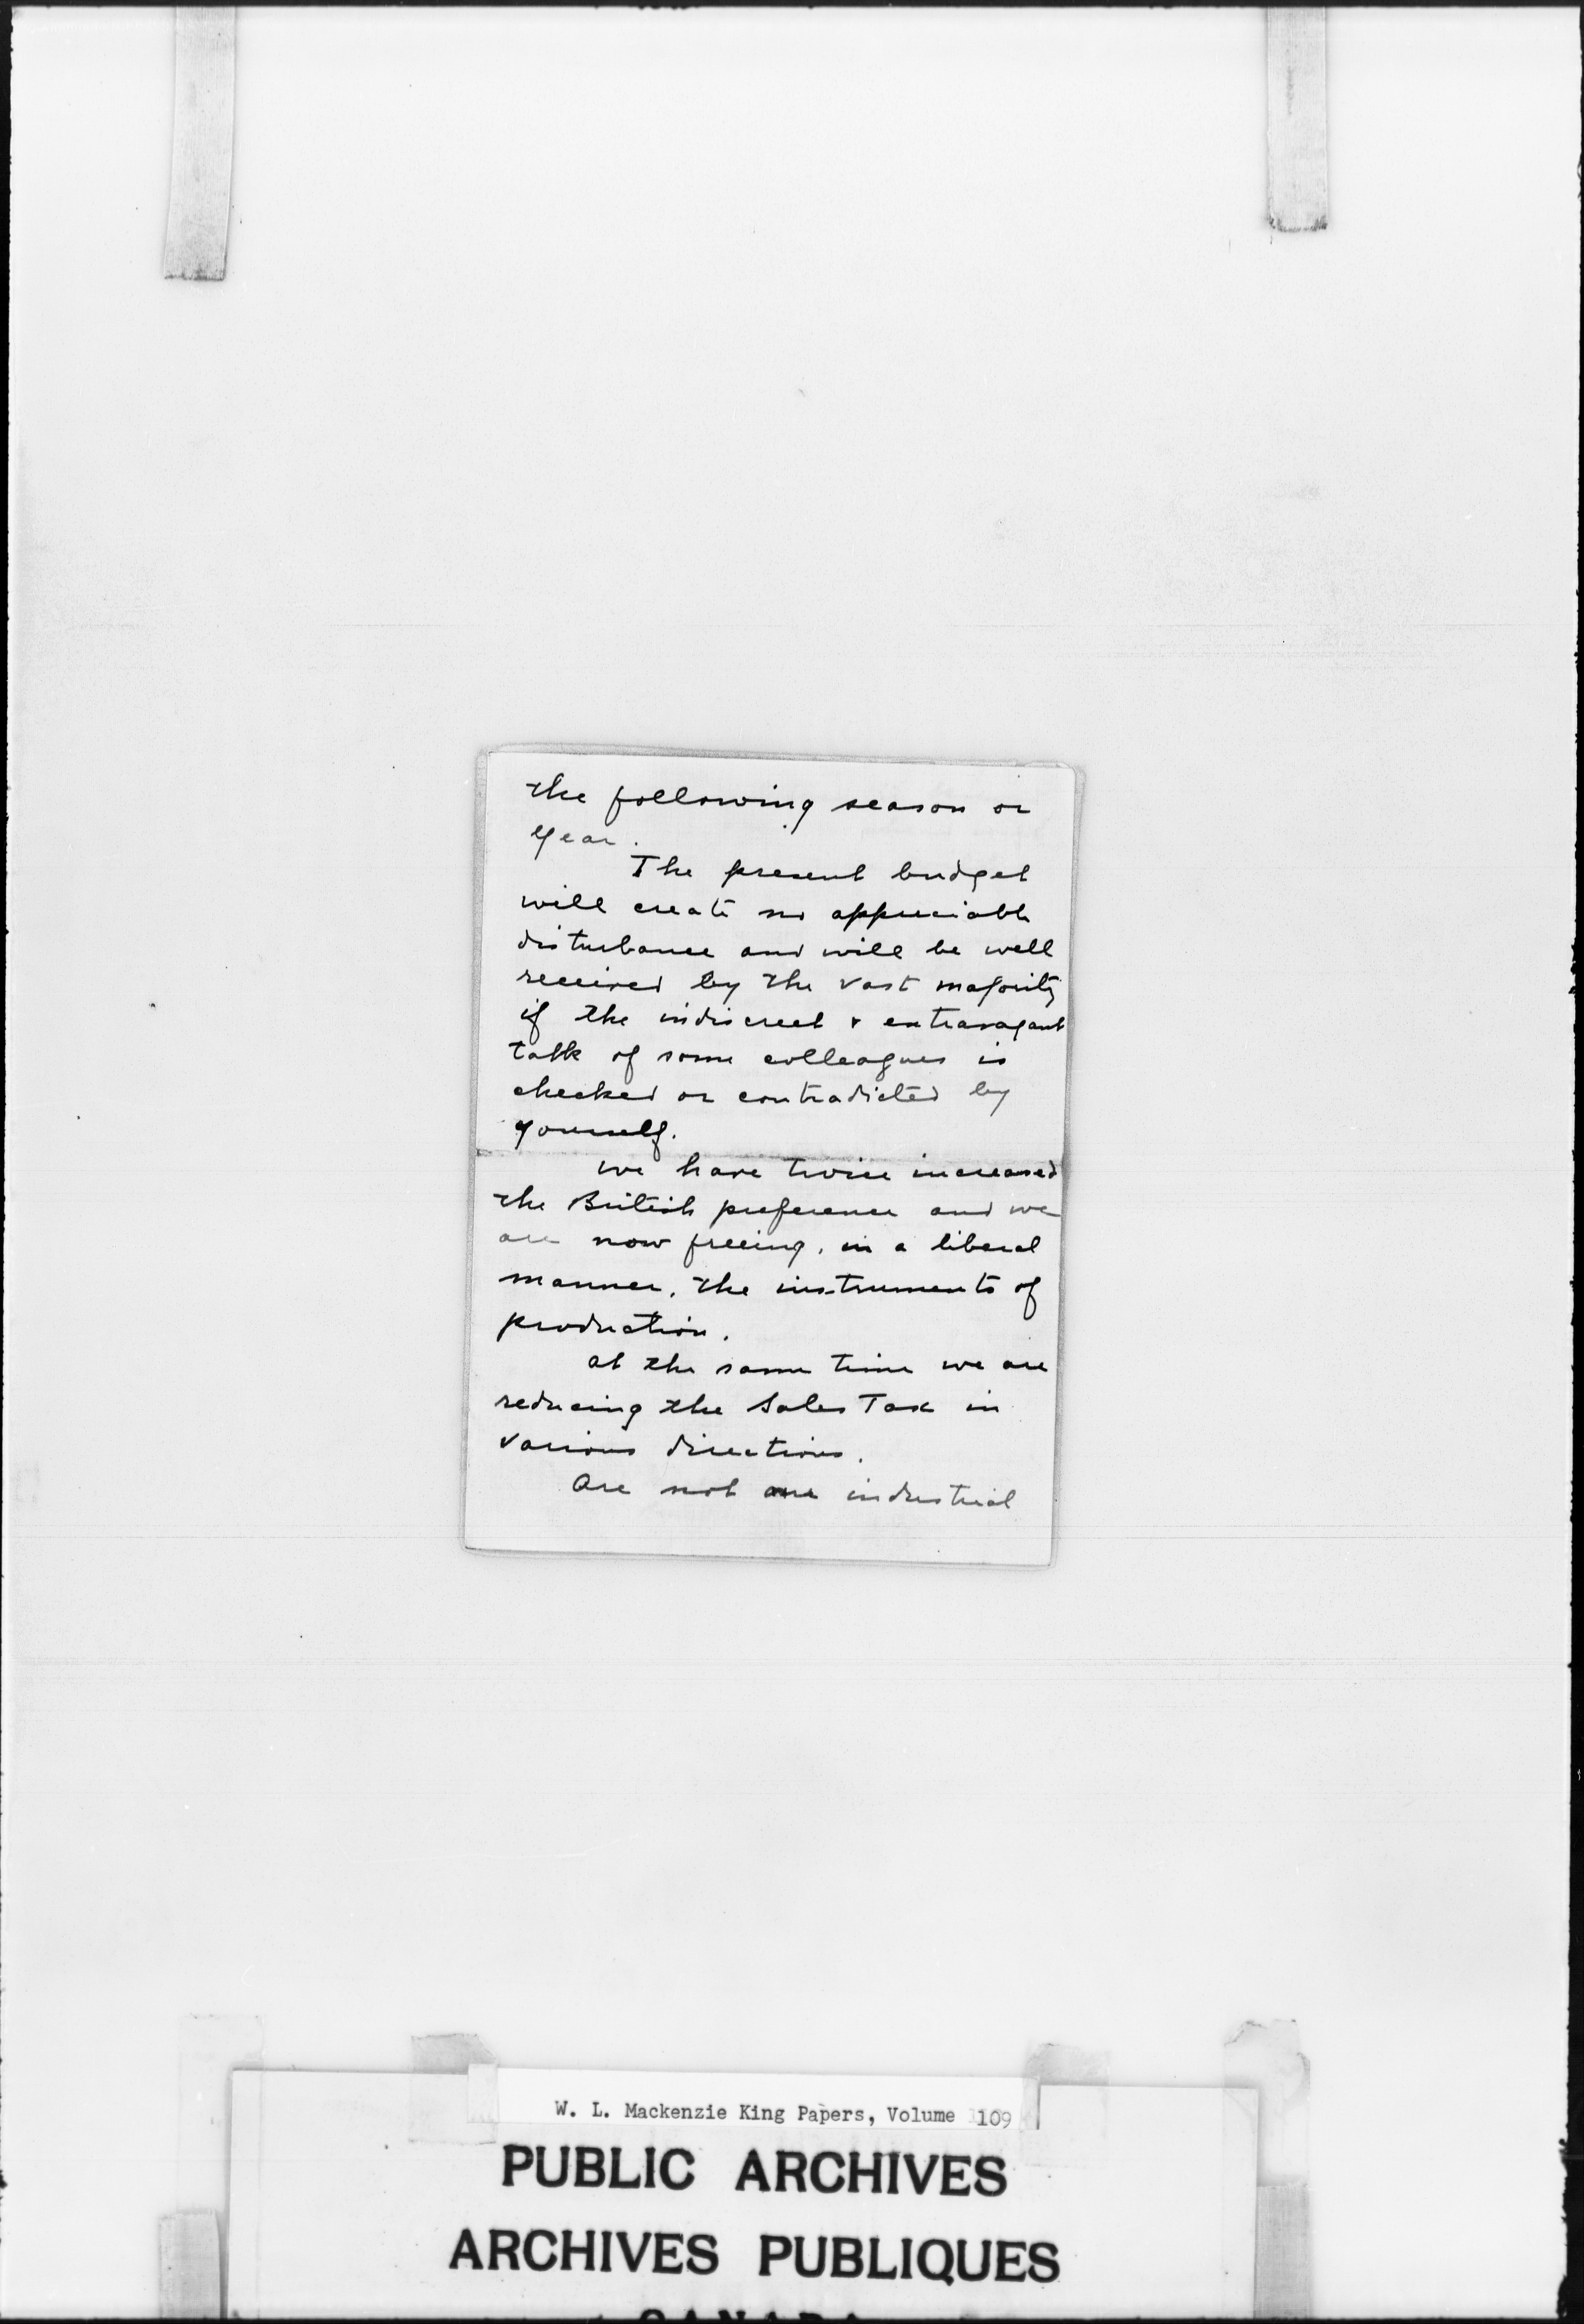 the following season or
year.
The present budget
will create no appreciable
disturbance and will be well
received by the vast majority
if the indiscreet & extravagant
talk of some colleagues is
checked or contradicted by
yourself.
we have twice increased
the British preference and we
are now freeing, in a liberal
manner, the instruments of
production.
at the same time we are
reducing the Sales Tax in
various directions.
Are not our industrial
W. L. Mackenzie King Papers, Volume 109
PUBLIC ARCHIVES
ARCHIVES PUBLIQUES
CANADA